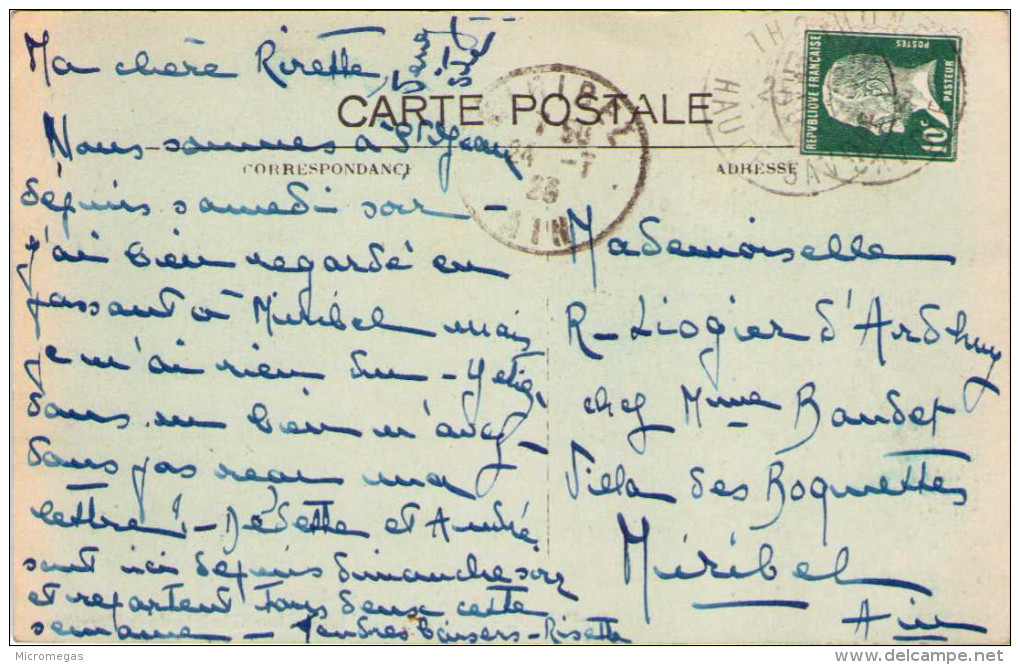 Ma chère Rirette,
CARTE POSTALE
CORRESPONDANCE
ADRESSE
Nous sommes à St Jean
depuis samedi soir -
j'ai bien regardé en
passant à Miribel mais
je n'ai rien vu -
dans un bien n'avez
vous pas reçu ma
lettre? - Dédette et André
sont ici depuis dimanche soir
et repartent tous deux cette
semaine - Tendres baisers - Risette
Mademoiselle
R - Liogier d'Ardhuy
chez Mme Baudet
Villa des Roquettes
Miribel
Ain
REPUBLIQUE FRANÇAISE
POSTES
PASTEUR
10c
MIRIBEL
24 - 7
26
AIN
HAUTE SAVOIE
Micromegas
delcampe.net